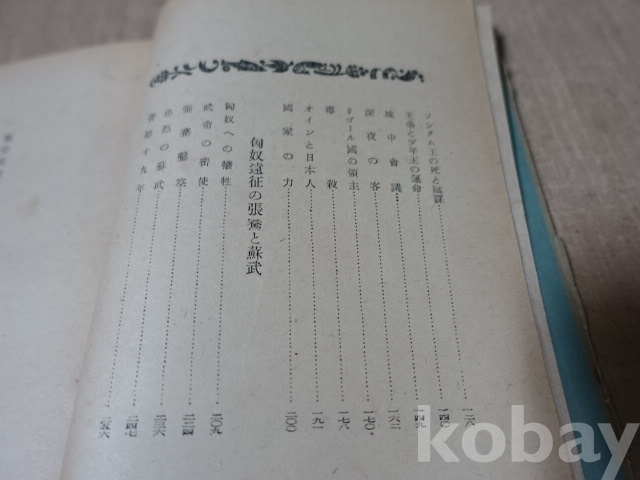 ソンタム王の死と陰謀……一二六
王弟と少年王の運命……一四〇
城中會議……一四九
深夜の客……一六二
リゴール國の領主……一七〇
毒殺……一七六
オインと日本人……一九一
國家の力……二〇〇
匈奴遠征の張騫と蘇武
匈奴への犠牲……二〇九
武帝の密使
張騫鑿空……二三四
忠烈の蘇武……二三六
苦節十九年……二四七
kobay